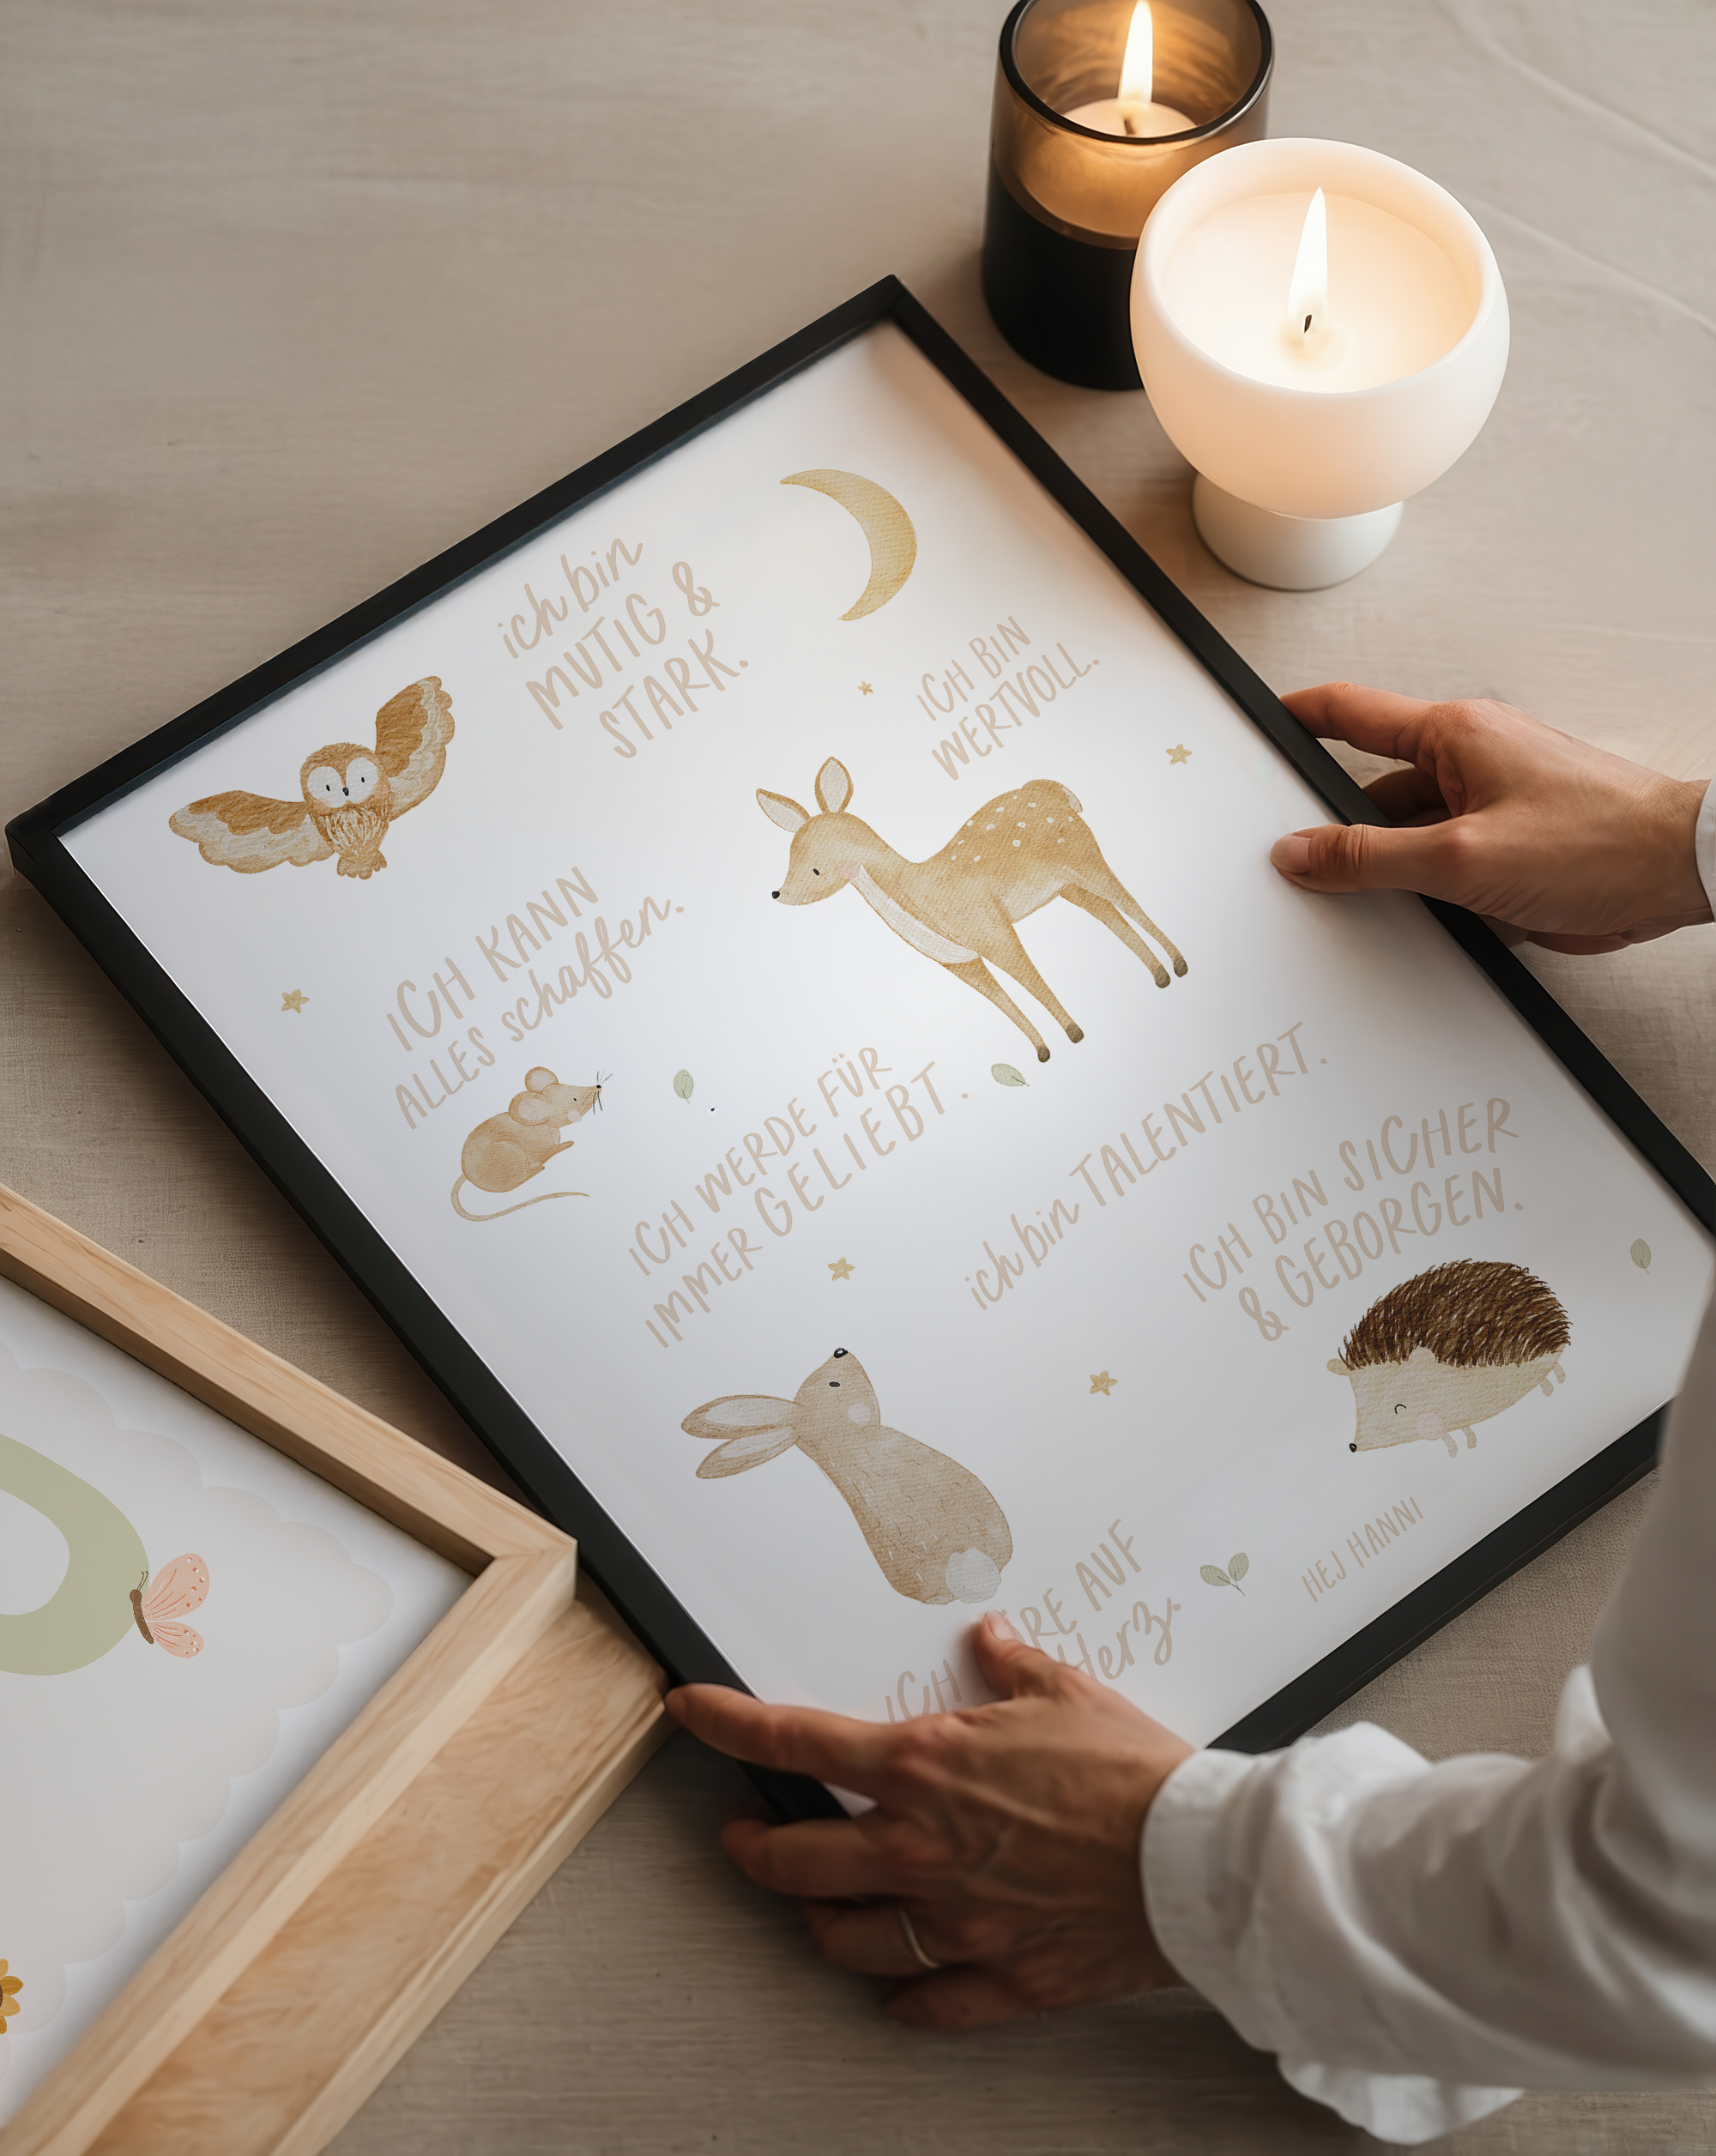 ich bin
MUTIG &
STARK.
ICH BIN
WERTVOLL.
ICH KANN
ALLES schaffen.
ICH WERDE FÜR
IMMER GELIEBT.
ich bin TALENTIERT.
ICH BIN SICHER
& GEBORGEN.
ICH AUF
Herz.
HEJ HANNI